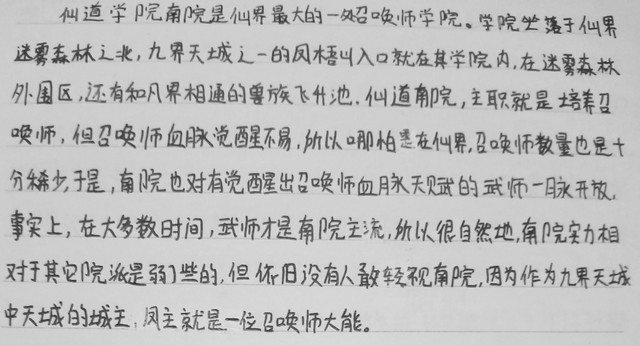 仙道学院南院是仙界最大的一处召唤师学院。学院坐落于仙界
迷雾森林之北,九界天城之一的凤梧山入口就在其学院内,在迷雾森林
外围区,还有和凡界相通的兽族飞升池.仙道南院,主职就是培养召
唤师,但召唤师血脉觉醒不易,所以哪怕是在仙界,召唤师数量也是十
分稀少,于是,南院也对有觉醒出召唤师血脉天赋的武师一脉开放,
事实上,在大多数时间,武师才是南院主流,所以很自然地,南院实力相
对于其它院派是弱1些的,但依旧没有人敢轻视南院,因为作为九界天城
中天城的城主,凤主就是一位召唤师大能。